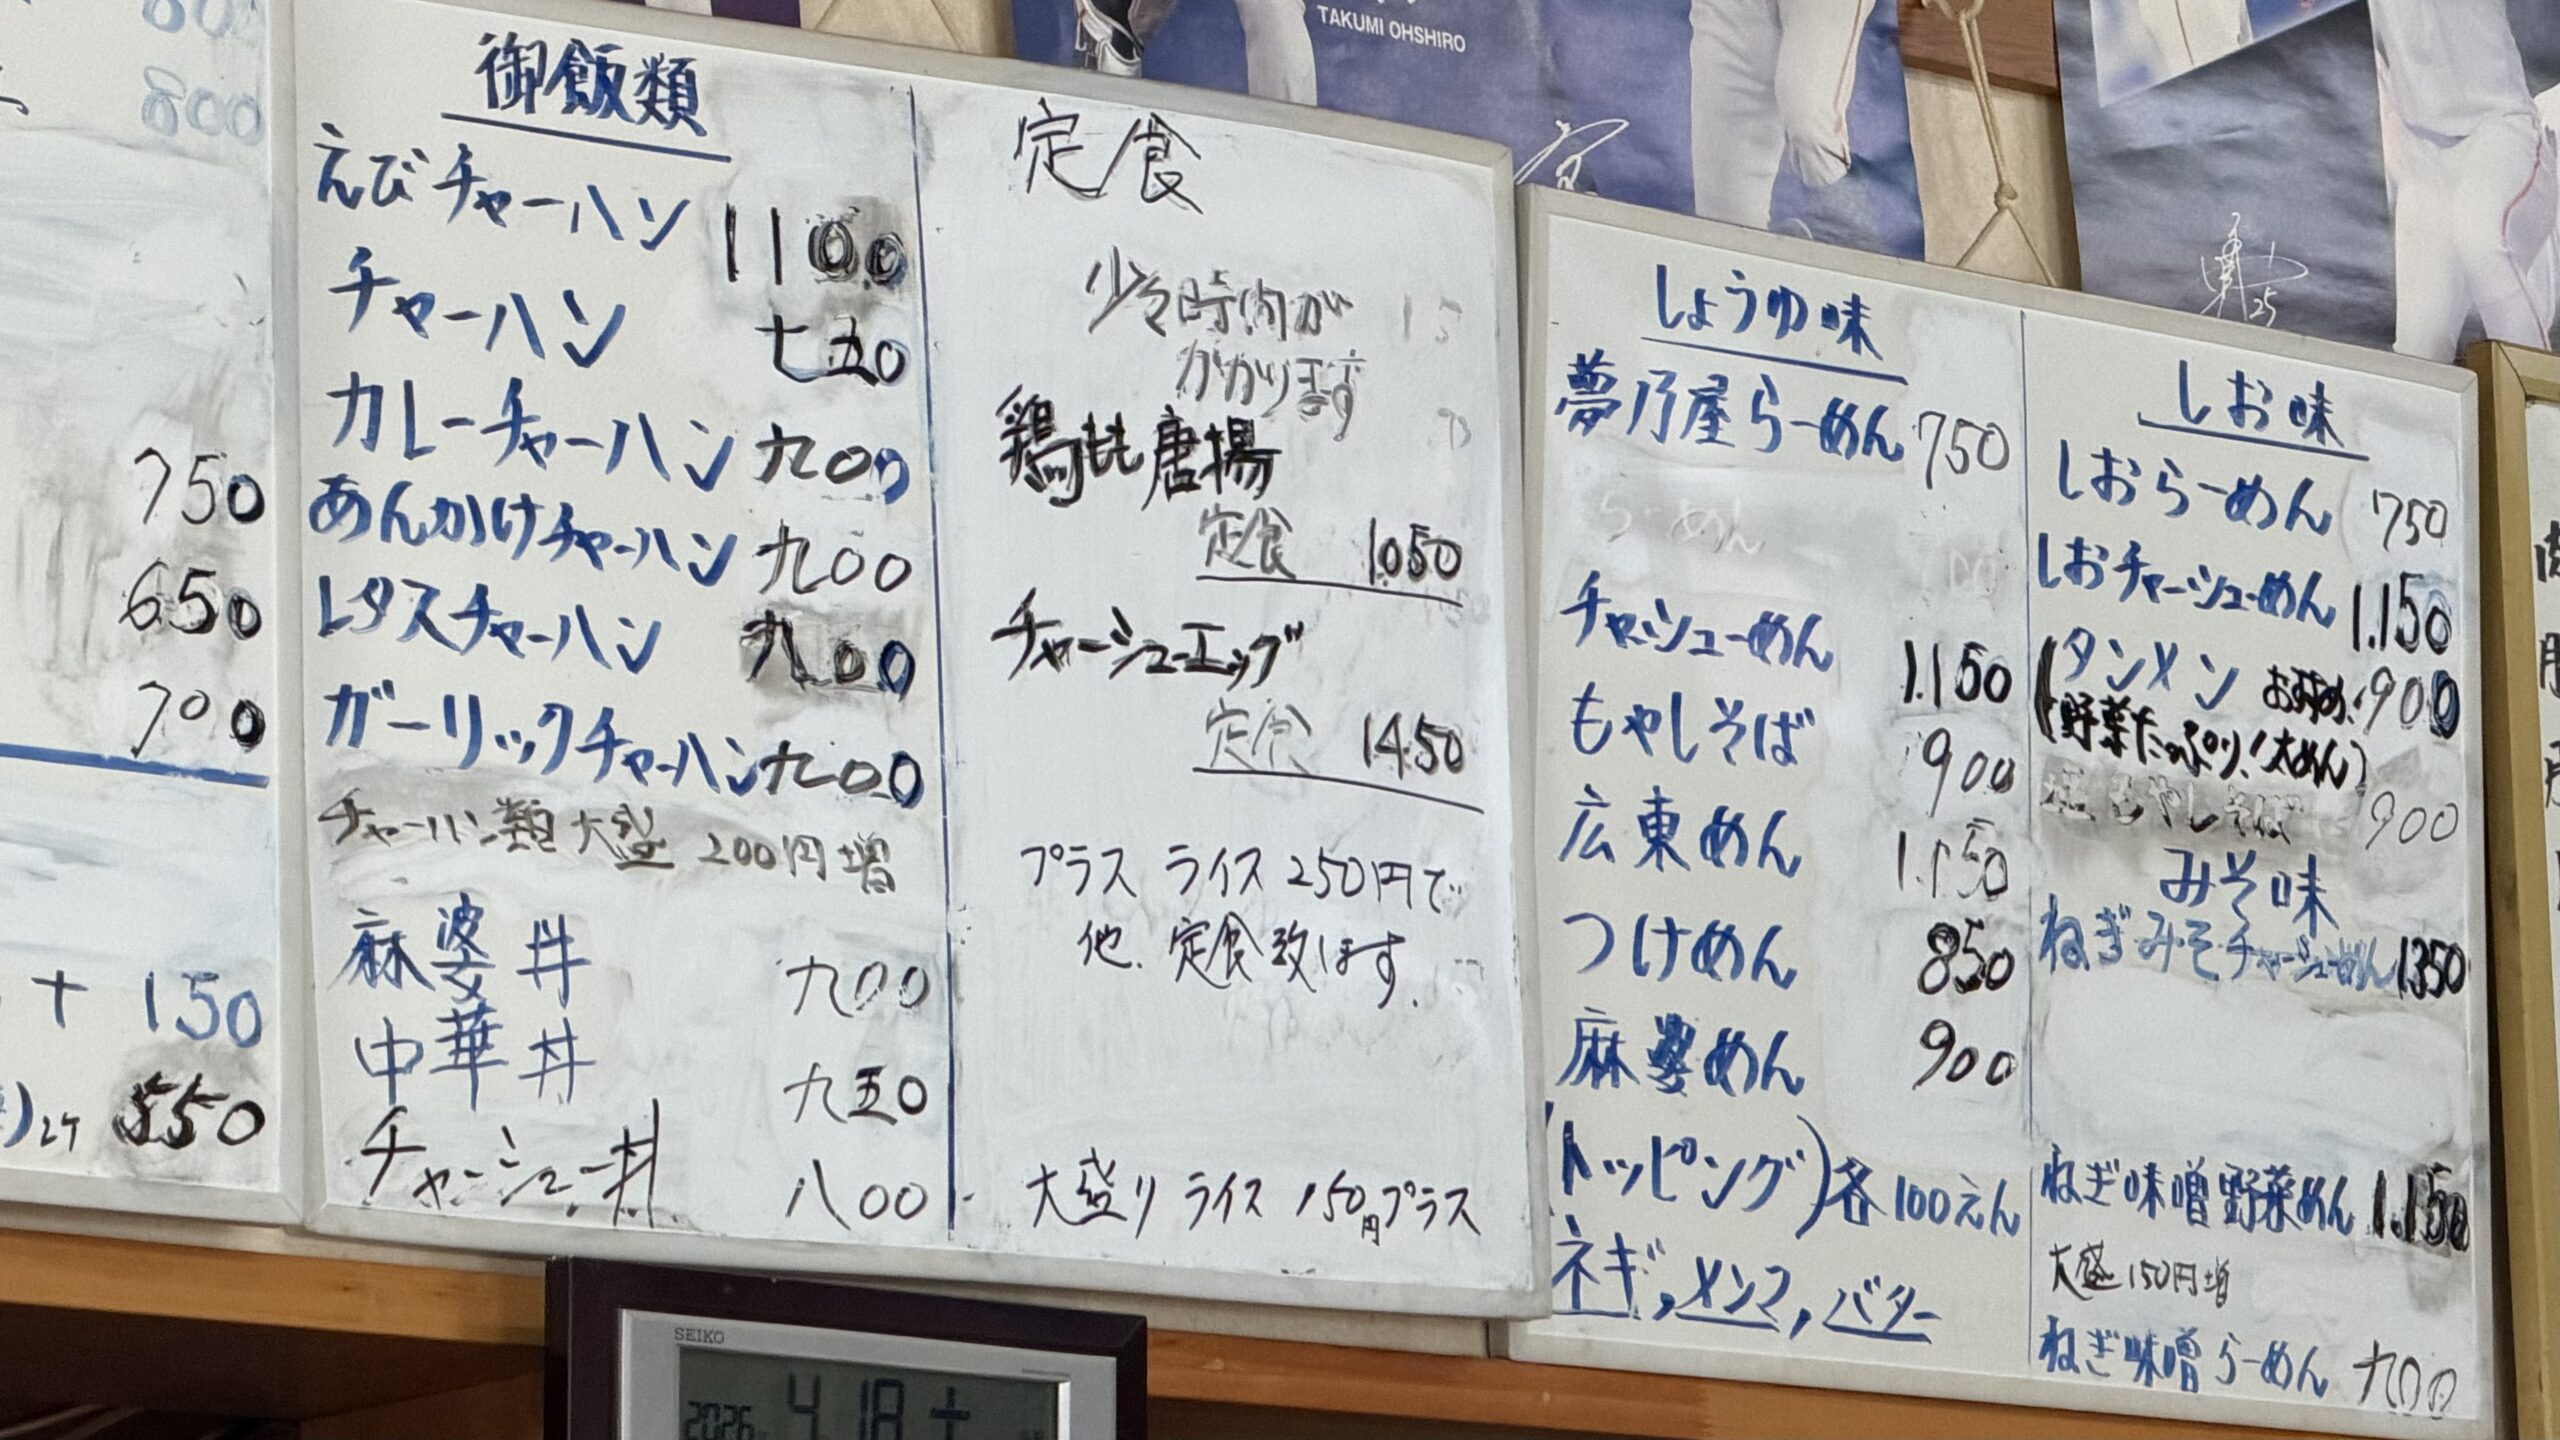 800
750
650
700
+ 150
550
御飯類
えびチャーハン 1100
チャーハン 七五0
カレーチャーハン 九00
あんかけチャーハン 九00
レタスチャーハン 九00
ガーリックチャーハン 九00
チャーハン類大盛 200円増
麻婆丼 九00
中華丼 九五0
チャーシュー丼 八00
定食
少々時間が
かかります
鶏もも唐揚
定食 1050
チャーシューエッグ
定食 1450
プラス ライス 250円で
他、定食致します。
大盛り ライス 150円プラス
TAKUMI OHSHIRO
25
しょうゆ味
夢乃屋らーめん 750
らーめん
チャーシューめん 1.150
もやしそば 900
広東めん 1.150
つけめん 850
麻婆めん 900
(トッピング)各100えん
ネギ,メンマ,バター
しお味
しおらーめん 750
しおチャーシューめん 1.150
タンメン おすすめ! 900
(野菜たっぷり!太めん)
塩もやしそば 900
みそ味
ねぎみそチャーシューめん 1350
ねぎ味噌野菜めん 1.150
大盛150円増
ねぎ味噌らーめん 九00
SEIKO
2026 4 18 土